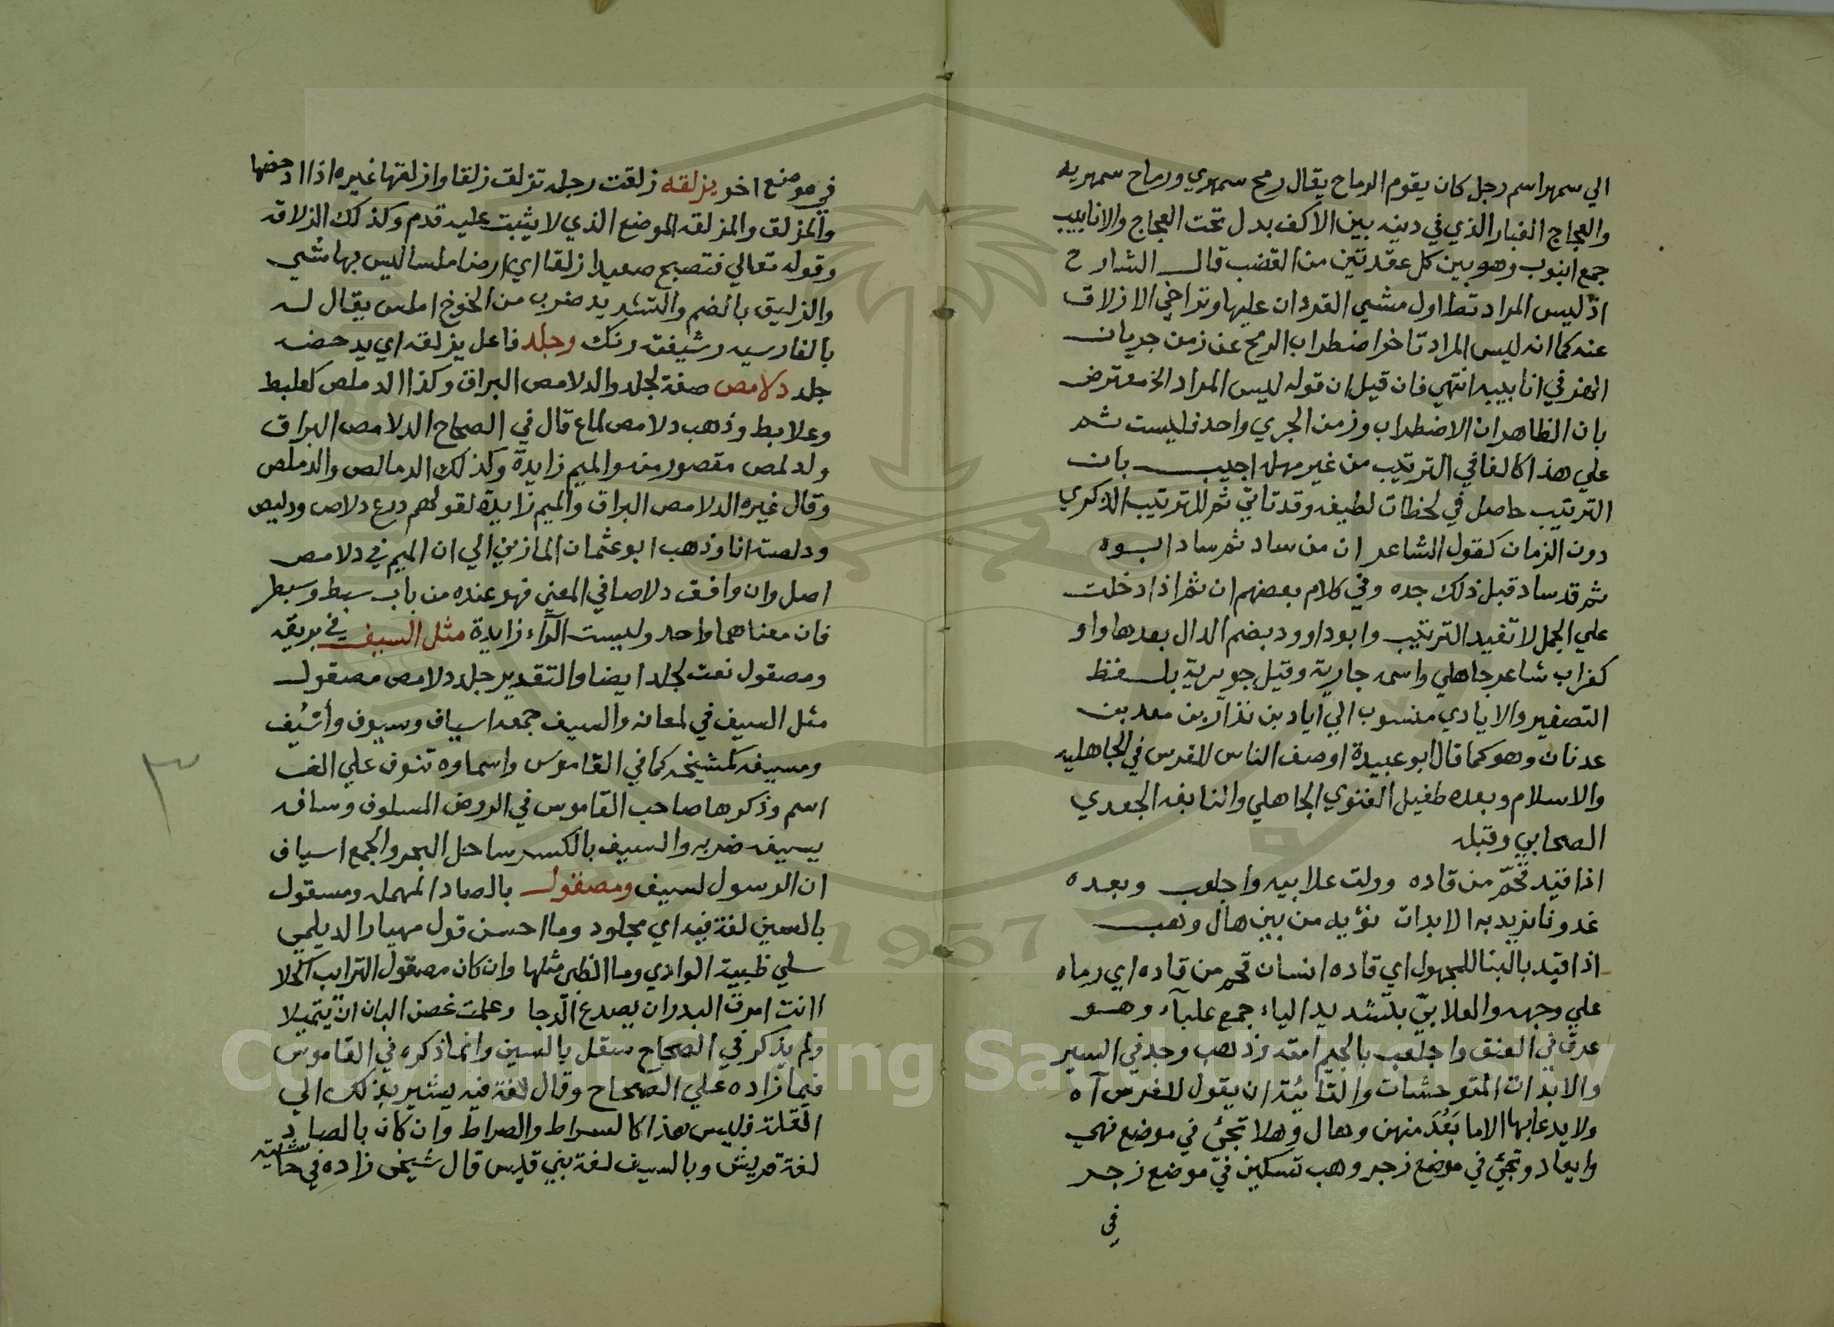 الي سمهر اسم رجل كان يقوم الرماح يقال رمح سمهري ورماح سمهريه
والعجاج الغبار الذي في دينه بين الاكف بدل تحت العجاج والانابيب
جمع انبوب وهو بين كل عقدتين من القضب قال الشارح
اذ ليس المراد تطاول مشي القردان عليها وتراخي الازلاق
عنه كما انه ليس المراد تاخر اضطراب الرمح عن زمن جريان
الهز في انابيبه انتهي فان قيل ان قوله ليس المراد الخ معترض
بان الظاهر ان الاضطراب وزمن الجري واحد فليست ثم
علي هذا كالفا في الترتيب من غير مهله اجيب بان
الترتيب حاصل في لحظات لطيفه وقد تاتي ثم للترتيب الذكري
دون الزمان كقول الشاعر ان من ساد ثم ساد ابوه
ثم قد ساد قبل ذلك جده وفي كلام بعضهم ان ثم اذا دخلت
علي الجمل لا تفيد الترتيب وابو داوود بضم الدال بعدها واو
كغراب شاعر جاهلي واسمه جارية وقيل جويرية بلفظ
التصغير والايادي منسوب الي اياد بن نزار بن معد بن
عدنان وهو كما قال ابو عبيدة اوصف الناس للفرس في الجاهليه
والاسلام وبعده طفيل الغنوي الجاهلي والنابغه الجعدي
الصحابي وقبله
اذا قيد قحم من قاده وولت علابيه واجلعب وبعده
غدونا نريد به الابدات نؤيه من بين هال وهب
اذا قيد بالبنا للمجهول اي قاده انسان قحم من قاده اي رماه
علي وجهه والعلابيّ بتشديد الياء جمع علباء وهو
عرق في العنق واجلعب بالجيم امتد وذهب وجد في السير
والابدات المتوحشات والتائية ان يقول للفرس آه
ولا يدعا بها الا ما بَعُدَ منهن وهال وهلا تجئ في موضع نهي
وايعاد وتجئ في موضع زجر وهب تسكين في موضع زجر
في
في موضع اخر يزلقه زلقت رجله تزلق زلقا وازلقها غيره اذا ادحضها
والمزلق والمزلقه الموضع الذي لا يثبت عليه قدم وكذلك الزلاقه
وقوله تعالي فتصبح صعيدا زلقا اي ارضا ملسا ليس بها شي
والزليق بالضم والتشديد ضرب من الخوخ املس يقال له
بالفارسيه شيفته رنك وجلد فاعل يزلقه اي يدحضه
جلد دلامص صفة لجلد والدلامص البراق وكذا الدملص كعلبط
وعلابط وذهب دلامص لماع قال في الصحاح الدلامص البراق
والدلمص مقصور منه والميم زايدة وكذلك الدمالص والدملص
وقال غيره الدلامص البراق والميم زايدة لقولهم درع دلاص ودليص
ودلصته انا وذهب ابو عثمان المازني الي ان الميم في دلامص
اصل وان وافق دلاصا في المعني فهو عنده من باب سبط وسبطر
فان معناهما واحد وليست الرآء زايدة مثل السيف في بريقه
ومصقول نعت لجلد ايضا والتقدير جلد دلامص مصقول
مثل السيف في لمعانه والسيف جمعه اسياف وسيوف وأسْيُف
ومسيفه كمشيخه كما في القاموس واسماوه تنوف علي الف
اسم وذكرها صاحب القاموس في الروض المسلوف وسافه
يسيفه ضربه والسيف بالكسر ساحل البحر والجمع اسياف
ان الرسول لسيف ومصقول بالصاد المهمله ومسقول
بالسين لغة فيه اي مجلود وما احسن قول مهيار الديلمي
سلي ظبية الوادي وما الظبي مثلها وان كان مصقول الترايب اكحلا
اانت امرت البدر ان يصدع الدجا وعلمت غصن البان ان يتميلا
ولم يذكر في الصحاح سقل بالسين وانما ذكره في القاموس
فيما زاده علي الصحاح وقال لغة فيه يشير بذلك الي
القلة وليس هذا كالسراط والصراط وان كان بالصاد
لغة قريش وبالسين لغة بني قيس قال شيخي زاده في حاشيته
٣
Copyright © King Saud University
1957